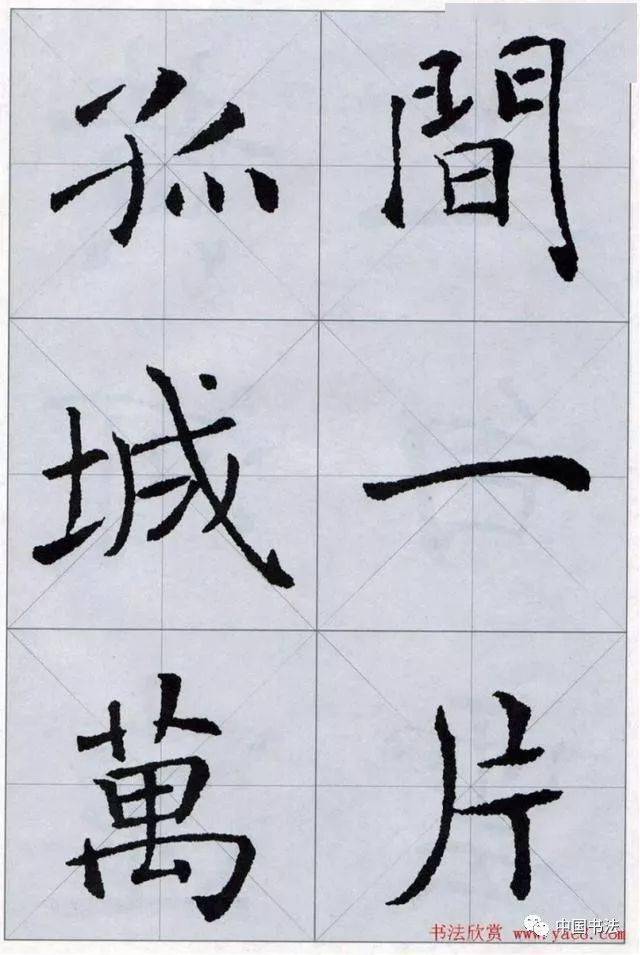 間一片
孤城萬
书法欣赏 www.yac8.com
中国书法